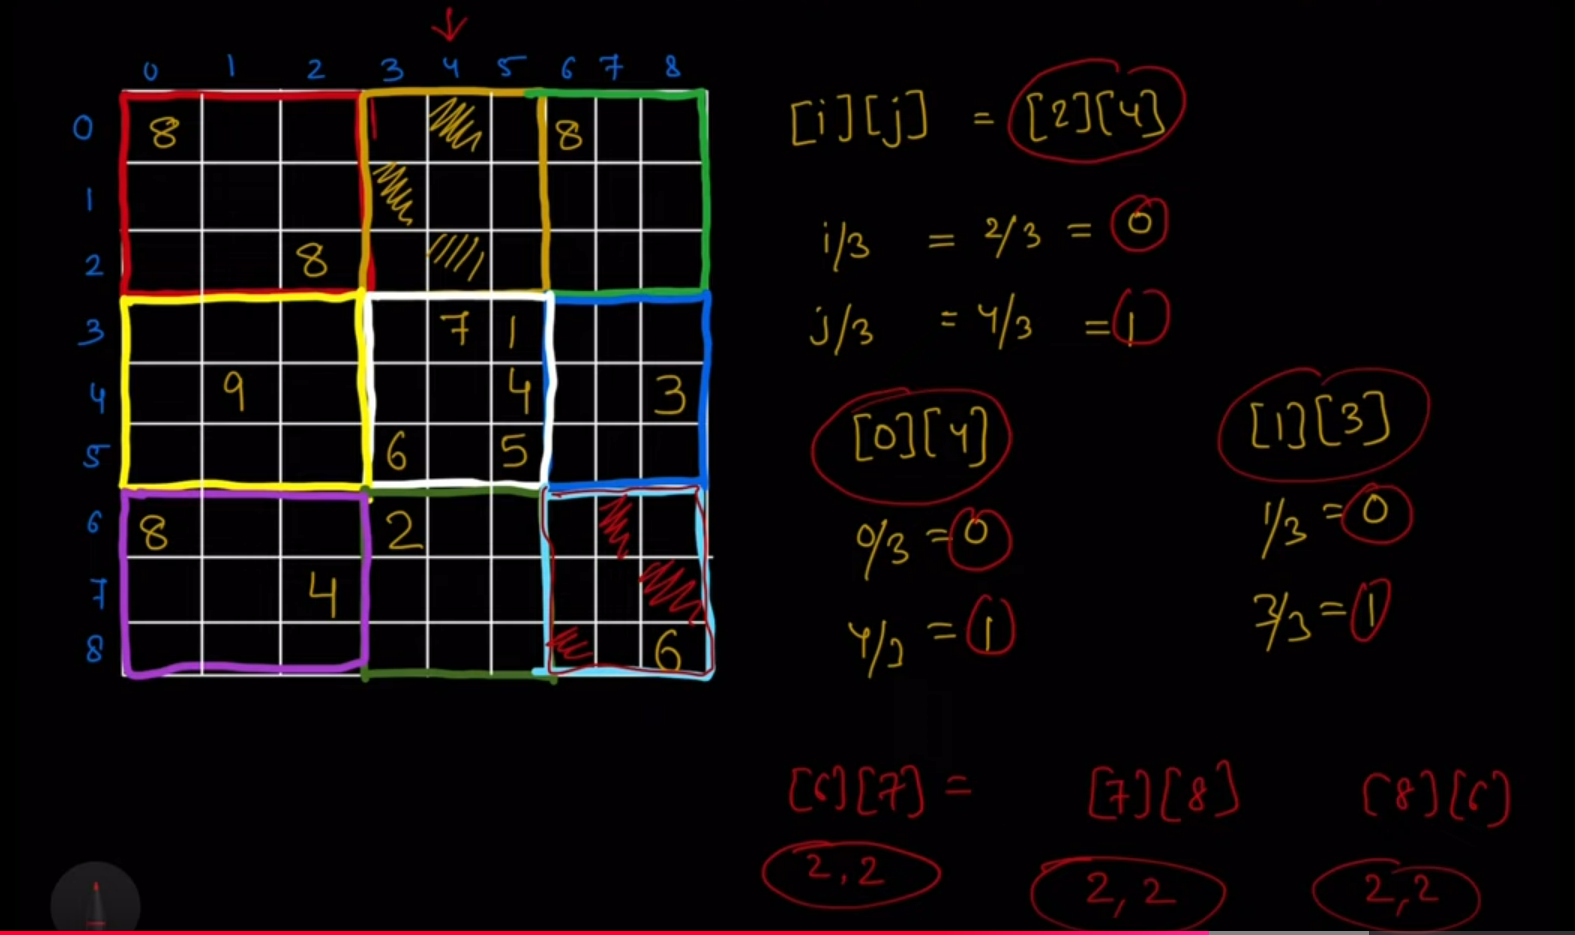 0 1 2 3 4 5 6 7 8
0 8 8
1
2 8
3 7 1
4 9 4 3
5 6 5
6 8 2
7 4
8 6
[i][j] = [2][4]
i/3 = 2/3 = 0
j/3 = 4/3 = 1
[0][4] [1][3]
0/3 = 0 1/3 = 0
4/3 = 1 3/3 = 1
[6][7] = [7][8] [8][6]
2,2 2,2 2,2